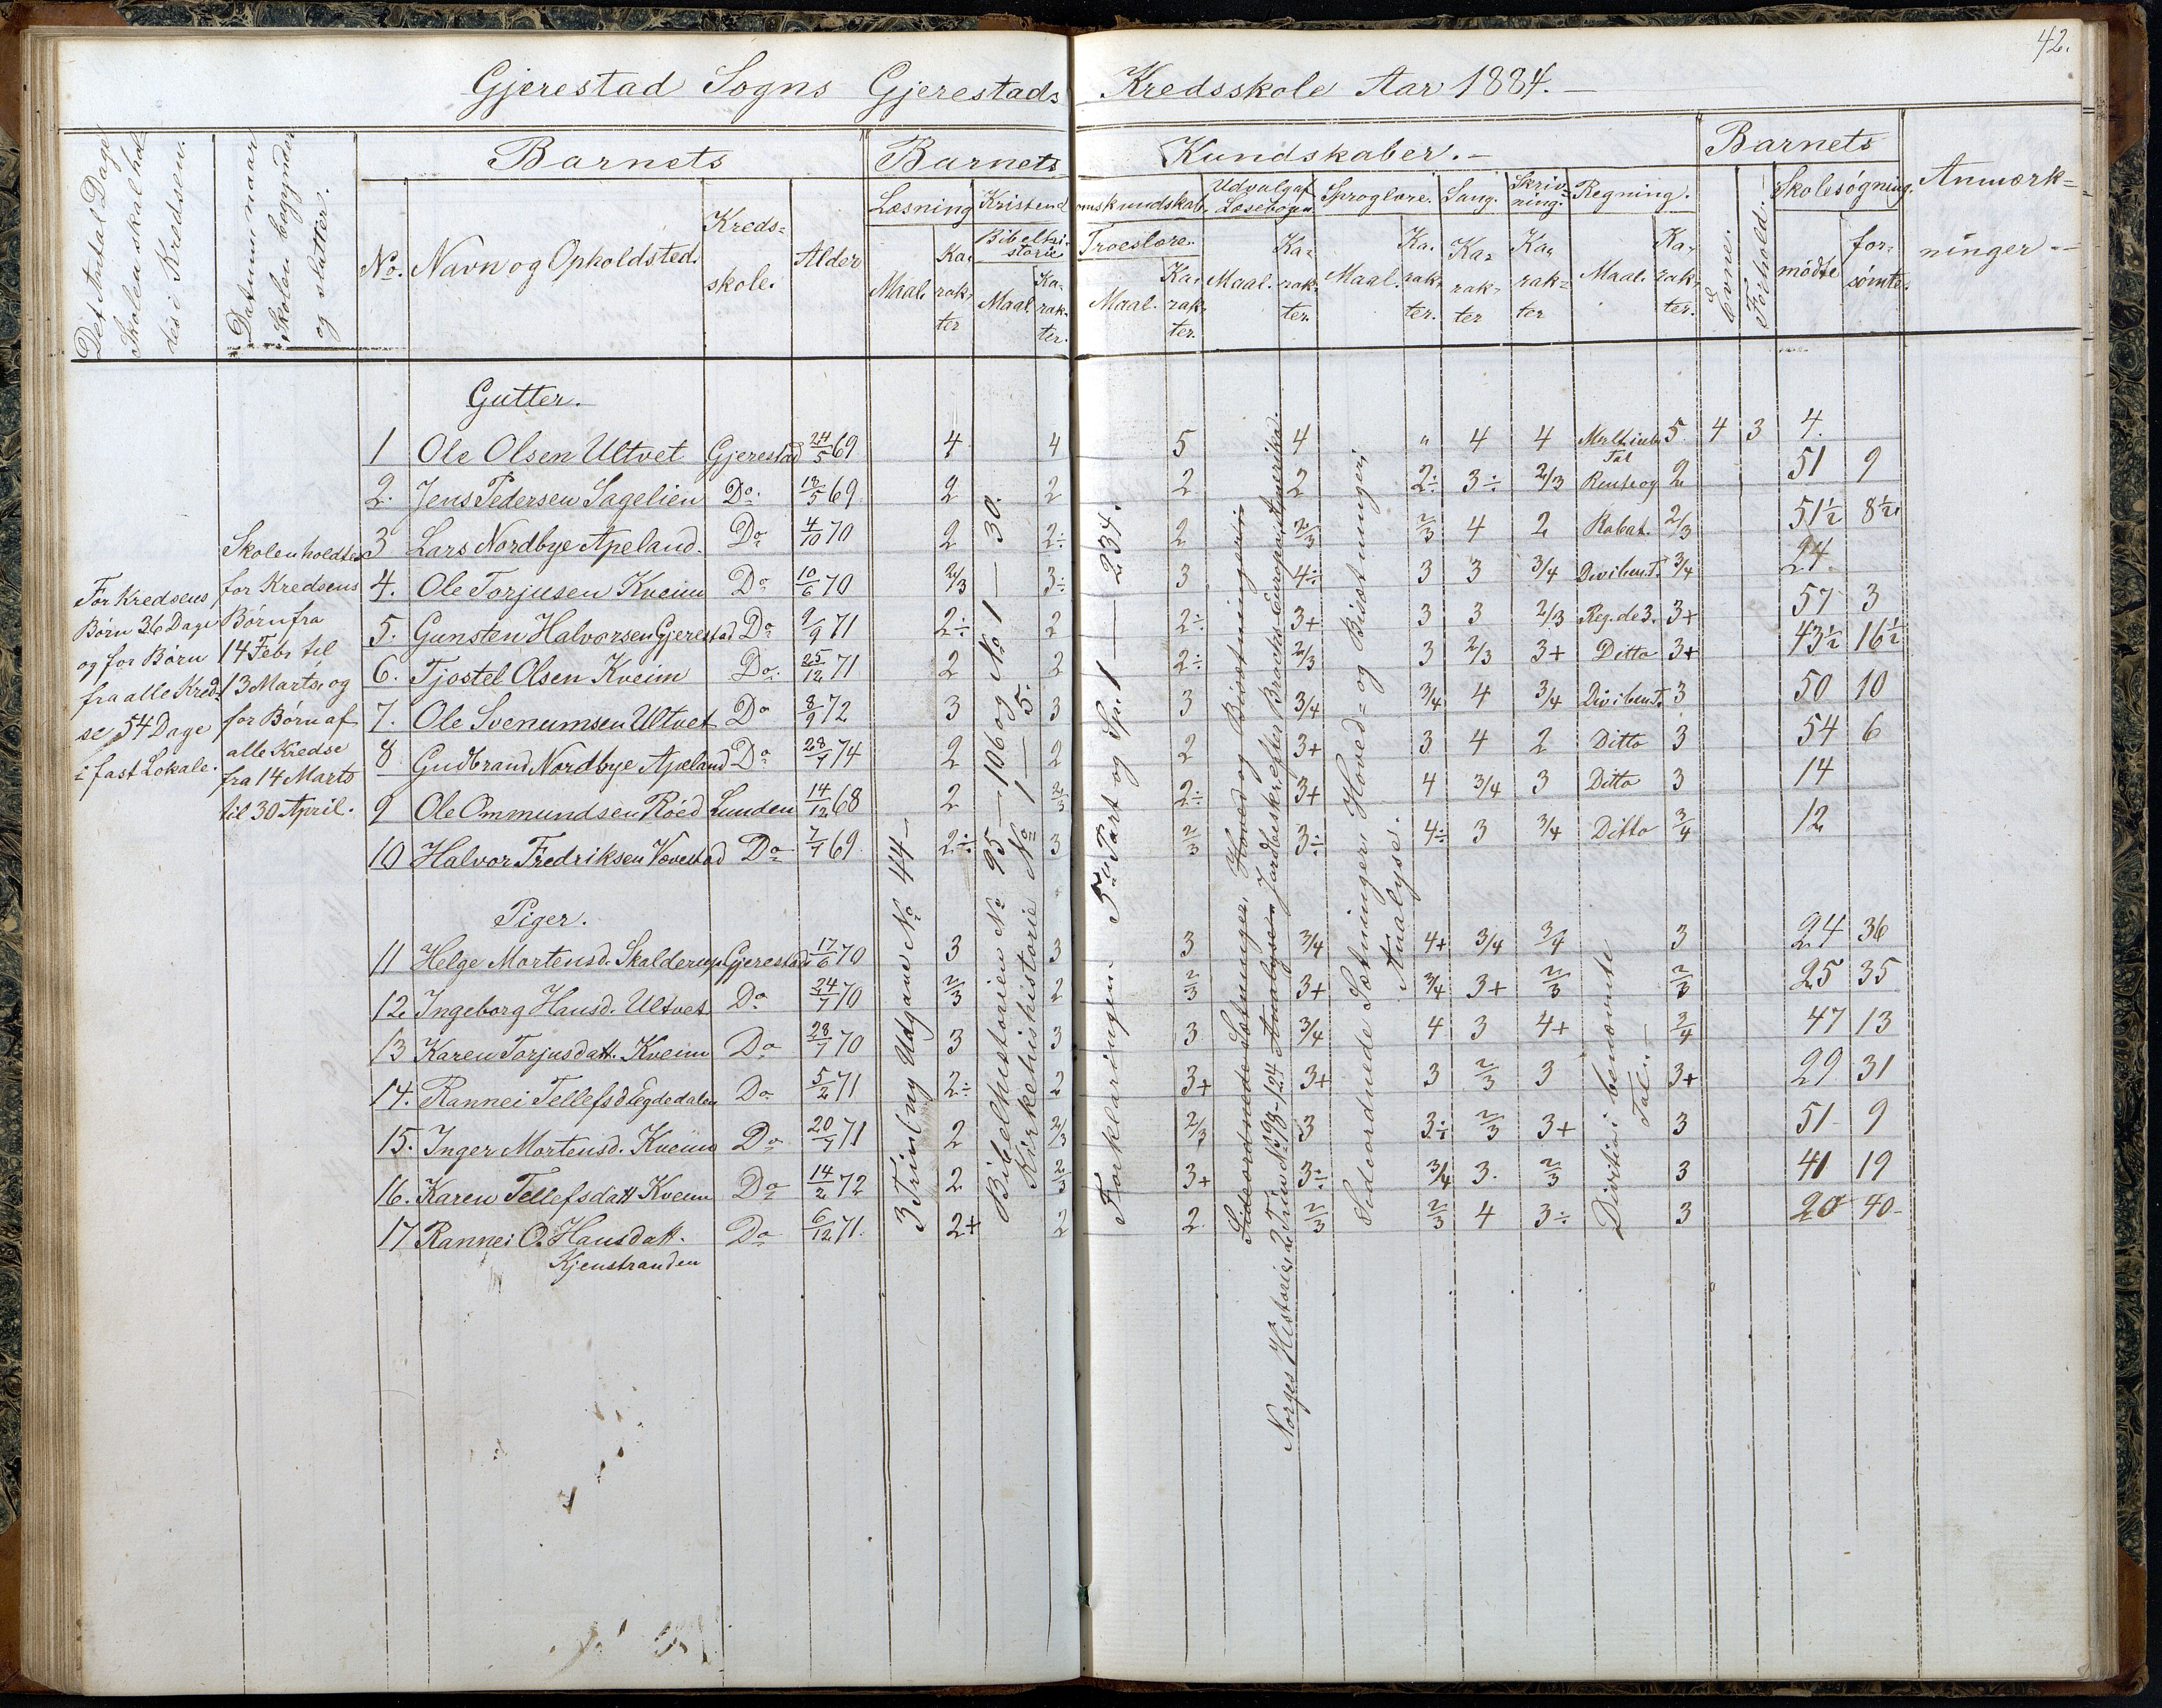 42.
Gjerestad Sogns Gjerestads Kredsskole Aar 1884.
Det Antal Dage Skolen skal holdes i Kredsen.
Datum naar Skolen begynder og slutter.
Barnets
No. Navn og Opholdsted. Kredsskole. Alder
Barnets Kundskaber.
Læsning Kristendomskundskab. Udvalg af Læsebogen Sproglære. Sang. Skrivning. Regning.
Bibelhistorie Troeslære.
Maal. Karakter Maal. Karakter. Maal. Karakter. Maal. Karakter. Maal. Karakter. Karakter Karakter Maal. Karakter.
Barnets
Evne. Forhold. Skolesøgning.
mødte forsømte.
Anmærkninger
For Kredsens
Børn 36 Dage
og for Børn
fra alle Kredse
54 Dage
i fast Lokale.
Skolen holdtes
for Kredsens
Børn fra
14 Febr til
13 Marts, og
for Børn af
alle Kredse
fra 14 Marts
til 30 April.
Gutter.
1 Ole Olsen Ultvet Gjerestad 24/5 69 4 4 5 4 " 4 4 5. 4 3 4.
2. Jens Pedersen Sagelien Do. 18/5 69. 2 2 2 2 2÷ 3÷ 2/3 2 51 9
3 Lars Nordbye Apeland. Do 4/10 70 2 2÷ 2 2/3 2/3 4 2 Rabat. 2/3 51½ 8½
4. Ole Torjusen Kveim Do 10/6 70 2/3 3÷ 3 4÷ 3 3 3/4 3/4 24.
5. Gunsten Halvorsen Gjerestad Do 9/9 71 2÷ 2 2÷ 3+ 3 3 2/3 Reg. de 3. 3+ 57 3
6. Tjostel Olsen Kveim Do. 25/12 71 2 2 2÷ 2/3 3 2/3 3+ Ditto 3+ 43½ 16½
7. Ole Svenumsen Ultvet Do 8/9 72 3 3 3 3/4 3/4 4 3/4 3 50 10
8 Gudbrand Nordbye Apeland Do 28/7 74 2 2 2 3+ 3 4 2 Ditto 3 54 6
9 Ole Ommundsen Röed Lunden 14/12 68 2 2/3 2÷ 3+ 4 3/4 3 Ditto 3 14
10 Halvor Fredriksen Vævestad Do 7/7 69. 2÷ 3 2/3 3÷ 4÷ 3 3/4 Ditto 3/4 12
Piger.
11 Helge Mortensd. Skalderup Gjerestad 17/6 70 3 3 3 3/4 4+ 3/4 3/4 3 24 36
12. Ingeborg Hansd. Ultvet Do 24/7 70 2/3 2 2/3 3+ 3/4 3+ 2/3 2/3 25 35
13 Karen Torjusdatt. Kveim Do 28/7 70 3 3 3 3/4 4 3 4+ 3/4 47 13
14. Rannei Tellefsd Egdedalen Do 5/2 71 2÷ 2 3+ 3+ 3 2/3 3 3+ 29 31
15. Inger Mortensd. Kveim Do 20/7 71 2 2/3 2/3 3 3÷ 2/3 3+ 3 51 9
16. Karen Tellefsdatt Kveim Do 14/2 72 2 2/3 3+ 3÷ 3/4 3. 2/3 3 41 19
17 Rannei O. Hansdatt. Do 6/12 71. 2+ 2 2 2/3 2/3 4 3÷ 3 20 40
Kjenstranden
3 Trin i ny Udgave No 44
Bibelhistorien No 95 — 106 og No 1 — 30.
Kirkehistorie No 1 — 5.
Forklaringen 5te Part og Sp. 1 — 234.
Sideordnede Sætninger, Hoved og Bisætninger
Norges Historie, 2 Trin No 98-124 Jordbeskr. efter Broch: Europa, Amerika.
Sideordnede Sætninger, Hoved= og Bisætninger,
Analyse.
Division i benævnte
Tal.